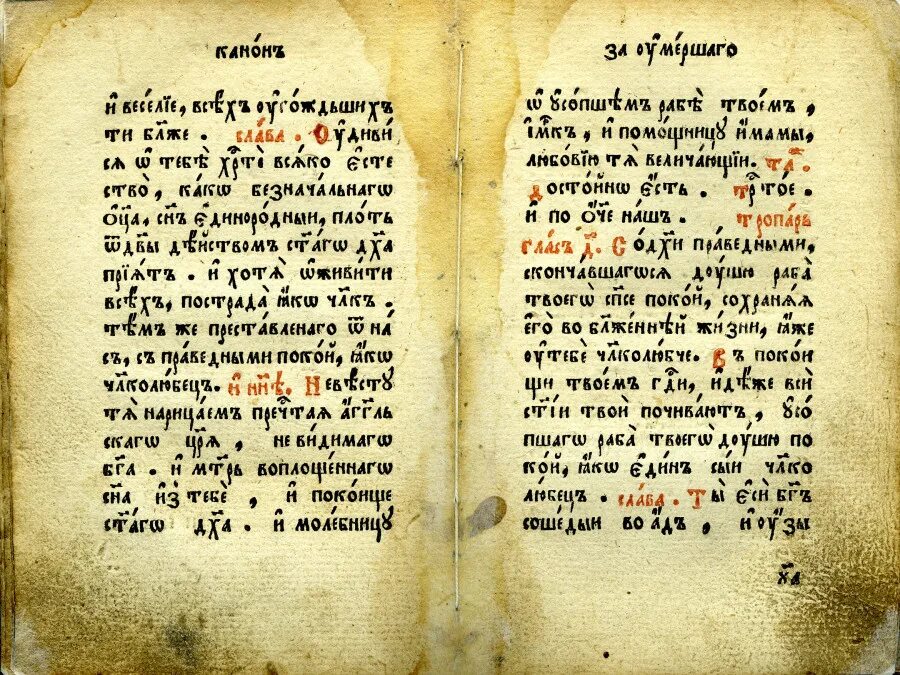 кано́нъ
и҆ весе́лїе, всѣ́хъ оу҆гожда́ьшихъ
ти бл҃же . сла́ва . Оу҆диви́
сѧ ѡ҆ тебѣ̀ хрⷭ҇тѐ всѧ́ко є҆сте
ство̀, ка́кѡ безнача́льнагѡ
ѻ҆ц҃а, сн҃ъ є҆диноро́дный, пло́ть
ѿ дв҃ы дѣ́йствомъ ст҃а́гѡ дх҃а
прїѧ́тъ . и҆ хотѧ̀ ѡ҆живи́ти
всѣ́хъ, пострада̀ ꙗ҆́кѡ чл҃къ .
тѣ́мъ же преста́вленаго ѿ на́
съ, съ пра́ведными поко́й, ꙗ҆́кѡ
чл҃колю́бецъ. и҆ нн҃ѣ. Невѣ́стꙋ
тѧ̀ нарица́емъ пречⷭ҇таѧ а҆́гг҃ль
скагѡ цр҃ѧ̀ , неви́димагѡ
бг҃а . и҆ мт҃рь воплоще́ннагѡ
сн҃а и҆з̾ тебѐ , и҆ поко́ище
ст҃а́гѡ дх҃а . и҆ моле́бницꙋ
за оу҆ме́ршаго
ѡ҆ ᲂу҆со́пшемъ рабѣ̀ твое́мъ ,
и҆́мⷬ҇къ , и҆ помо́щницꙋ и҆́мамы,
любо́вїю тѧ̀ велича́ющїи. та́ⷤ .
досто́йнѡ є҆́сть . трⷭ҇то́е .
и҆ по ѻ҆́ч҃е на́шъ . тропа́рь
гла́съ д҃. Со дх҃и пра́ведными,
сконча́вшагѡсѧ дꙋ́шю раба̀
твоегѡ̀ сп҃се поко́й, сохранѧ́ѧ
є҆го̀ во бл҃же́ннѣй жи́зни, ꙗ҆́же
оу҆ тебѐ чл҃колю́бче. Въ поко́и
щи твое́мъ гдⷭ҇и, и҆дѣ́же всѝ
ст҃і́и твоѝ почива́ютъ , ᲂу҆со́
пшагѡ раба̀ твоегѡ̀ дꙋ́шю по
ко́й, ꙗ҆́кѡ є҆ди́нъ сы́и чл҃ко
лю́бецъ . сла́ва . Ты̀ є҆сѝ бг҃ъ
соше́дыи во а҆́дъ , и҆ оу҆́зы